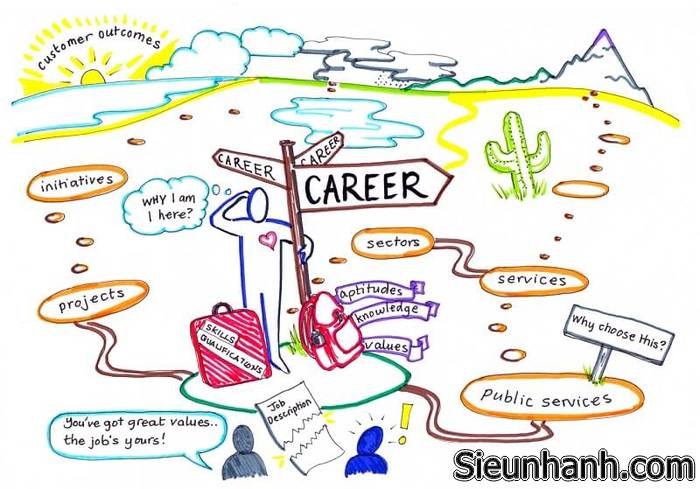 Customer outcomes
CAREER
CAREER
CAREER
initiatives
WHY I am
I here?
sectors
services
aptitudes
knowledge
values
projects
SKILLS
QUALIFICATIONS
Why choose this?
Public services
Job
Description
You've got great values..
the job's yours!
!
Sieunhanh.com